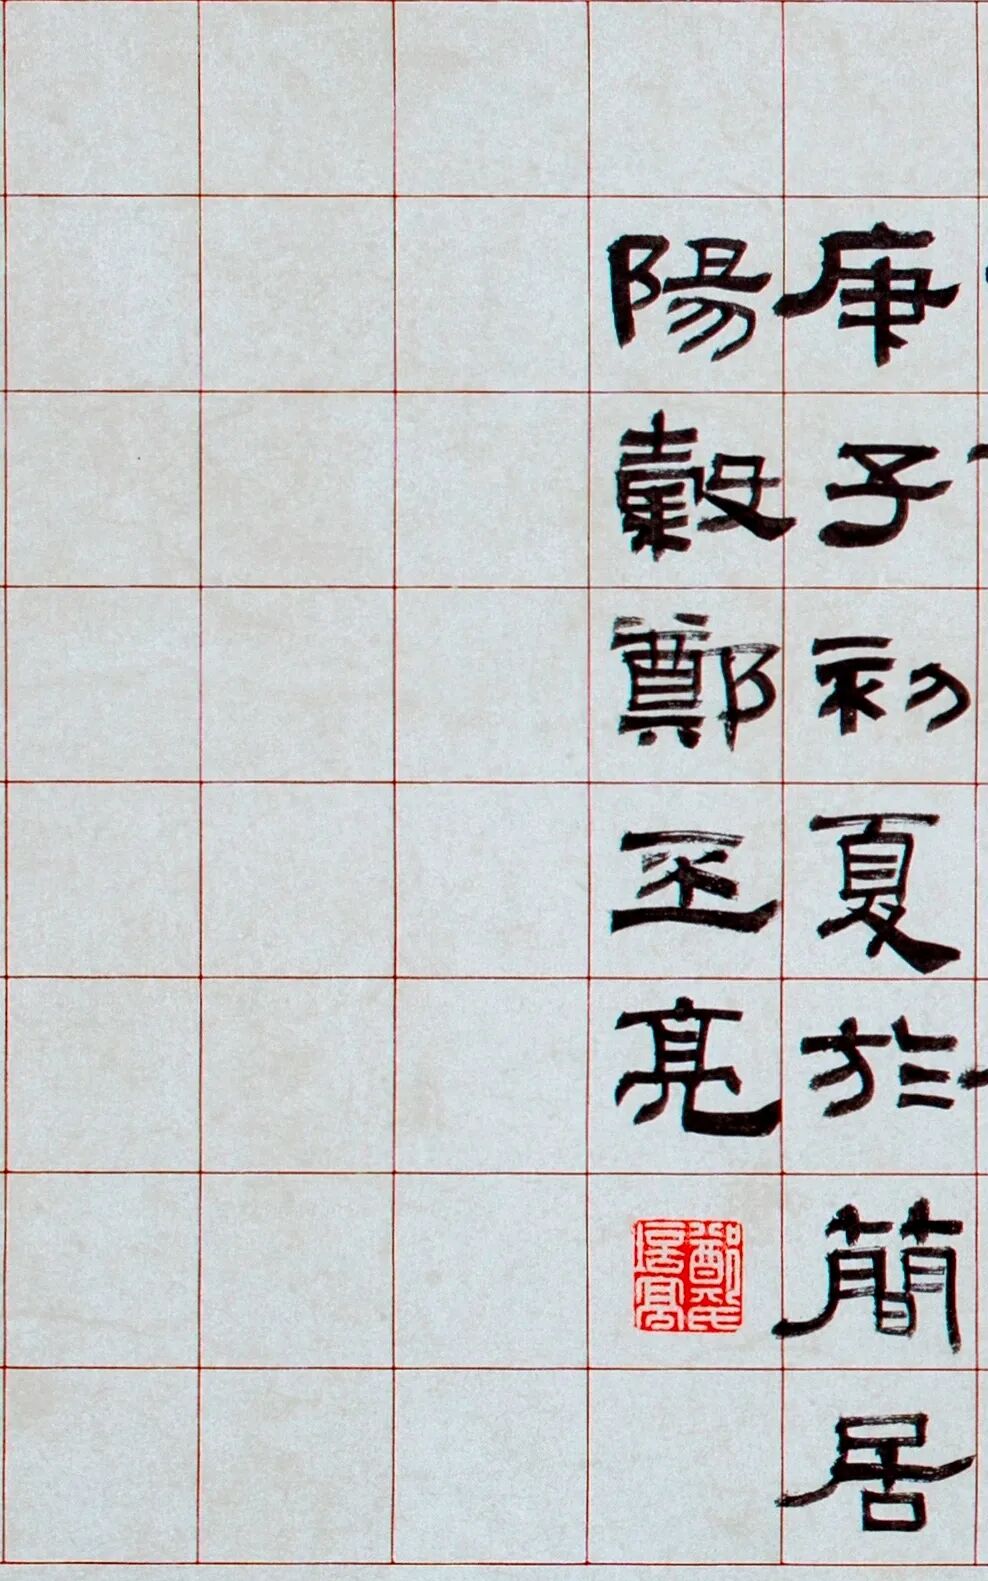 庚子初夏於簡居
陽穀鄭丕亮
鄭氏